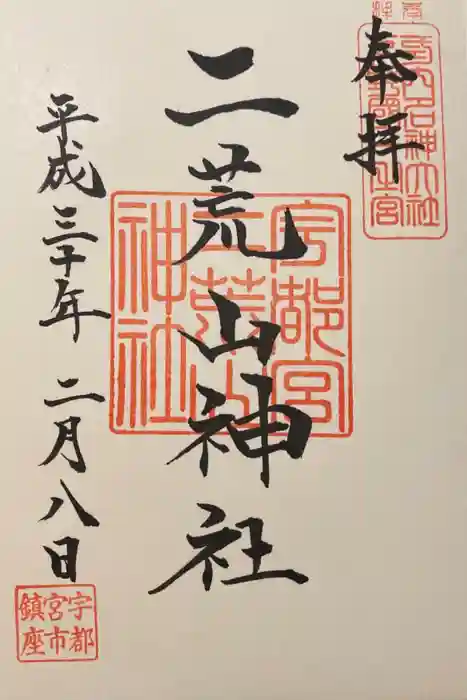 奉拝
延喜式内名神大社
下野國一之宮
二荒山神社
宇都宮
二荒山
神社
平成三十年二月八日
宇都
宮市
鎮座